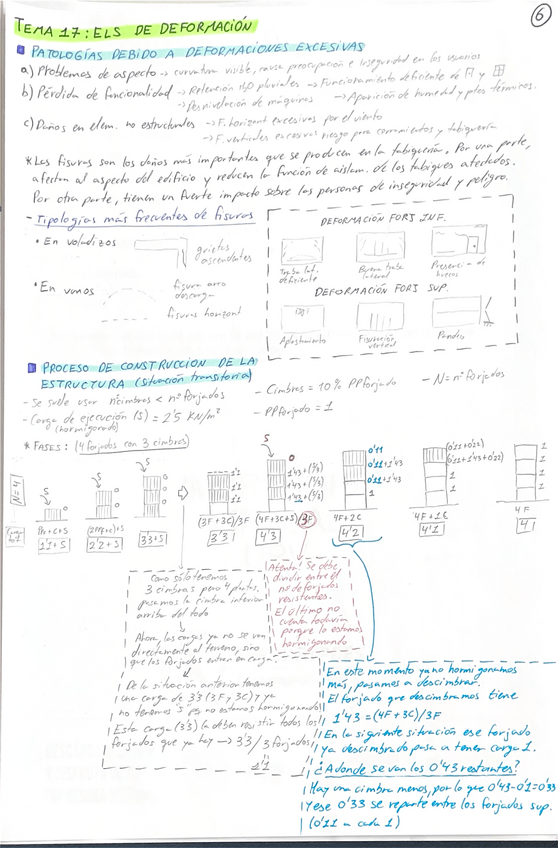 6
TEMA 17: ELS DE DEFORMACIÓN
PATOLOGÍAS DEBIDO A DEFORMACIONES EXCESIVAS
a) Problemas de aspecto → curvatura visible, causa preocupación e inseguridad en los usuarios
b) Pérdida de funcionalidad → Retención H2O pluviales → Funcionamiento deficiente de y
→ Desnivelación de máquinas → Aparición de humedad y ptes térmicos.
c) Daños en elem. no estructurales → F. horizont excesivas por el viento
→ F. verticales excesivas riesgo para cerramientos y tabiquería
* Las fisuras son los daños más importantes que se producen en la tabiquería. Por una parte,
afectan al aspecto del edificio y reducen la función de aislam. de los tabiques afectados.
Por otra parte, tienen un fuerte impacto sobre las personas de inseguridad y peligro.
- Tipologías más frecuentes de fisuras
• En voladizos
grietas
ascendentes
• En vanos
fisura arco
descarga
fisuras horizont
DEFORMACIÓN FORJ INF.
Traba lat.
deficiente
Buena traba
lateral
Presencia de
huecos
DEFORMACIÓN FORJ SUP.
Aplastamiento
Fisuración
vertical
Pandeo
PROCESO DE CONSTRUCCIÓN DE LA
ESTRUCTURA (situación transitoria)
- Se suele usar nºcimbras < nº forjados
- Carga de ejecución (S) = 2'5 KN/m²
(hormigonado)
- Cimbras = 10% PPforjado
- PPforjado = 1
- N = nº forjados
* FASES: (4 forjados con 3 cimbras)
N=4
S
0
1'1
1'43+(S/3)
0'11
0'11+1'43
1
(0'11+0'22)
(0'11+1'43+0'22)
1'1+S
2'2+S
3'3+S
(3F+3C)/3F
3'3
(4F+3C+S)/3F
4'3
4F+2C
4'2
4F+1C
4'1
4F
4
Como sólo tenemos
3 cimbras pero 4 plantas,
pasamos la cimbra inferior
arriba del todo
Ahora, las cargas ya no se van
directamente al terreno, sino
que los forjados entran en carga.
De la situación anterior tenemos
una carga de 3'3 (3F y 3C) y ya
no tenemos "S" pq no estamos hormigonando
Esta carga (3'3) la deben resistir todos los
forjados que ya hay → 3'3/3 forjados
1'1
Atenta! Se debe
dividir entre el
no de forjados
resistentes.
El último no
cuenta todavía
porque lo estamos
hormigonando
En este momento ya no hormigonamos
más, pasamos a descimbrar.
El forjado que descimbramos tiene
1'43 = (4F + 3C)/3F
En la siguiente situación ese forjado
ya descimbrado pasa a tener carga 1.
¿Adonde se van los 0'43 restantes?
Hay una cimbra menos, por lo que 0'43-0'1=0'33
Y ese 0'33 se reparte entre los forjados sup.
(0'11 a cada 1)